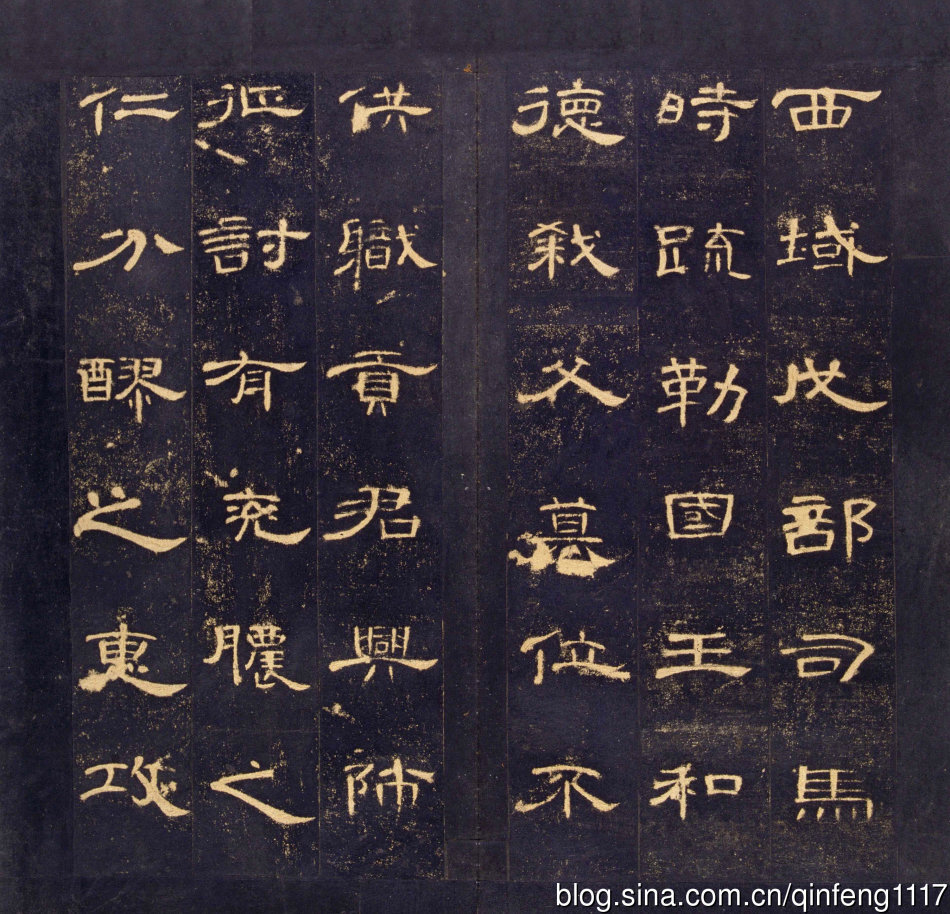 西域戊部司馬
時疏勒國王和
德弑父篡位不
供職貢君興師
征討有兗膿之
仁分醪之惠攻
blog.sina.com.cn/qinfeng1117